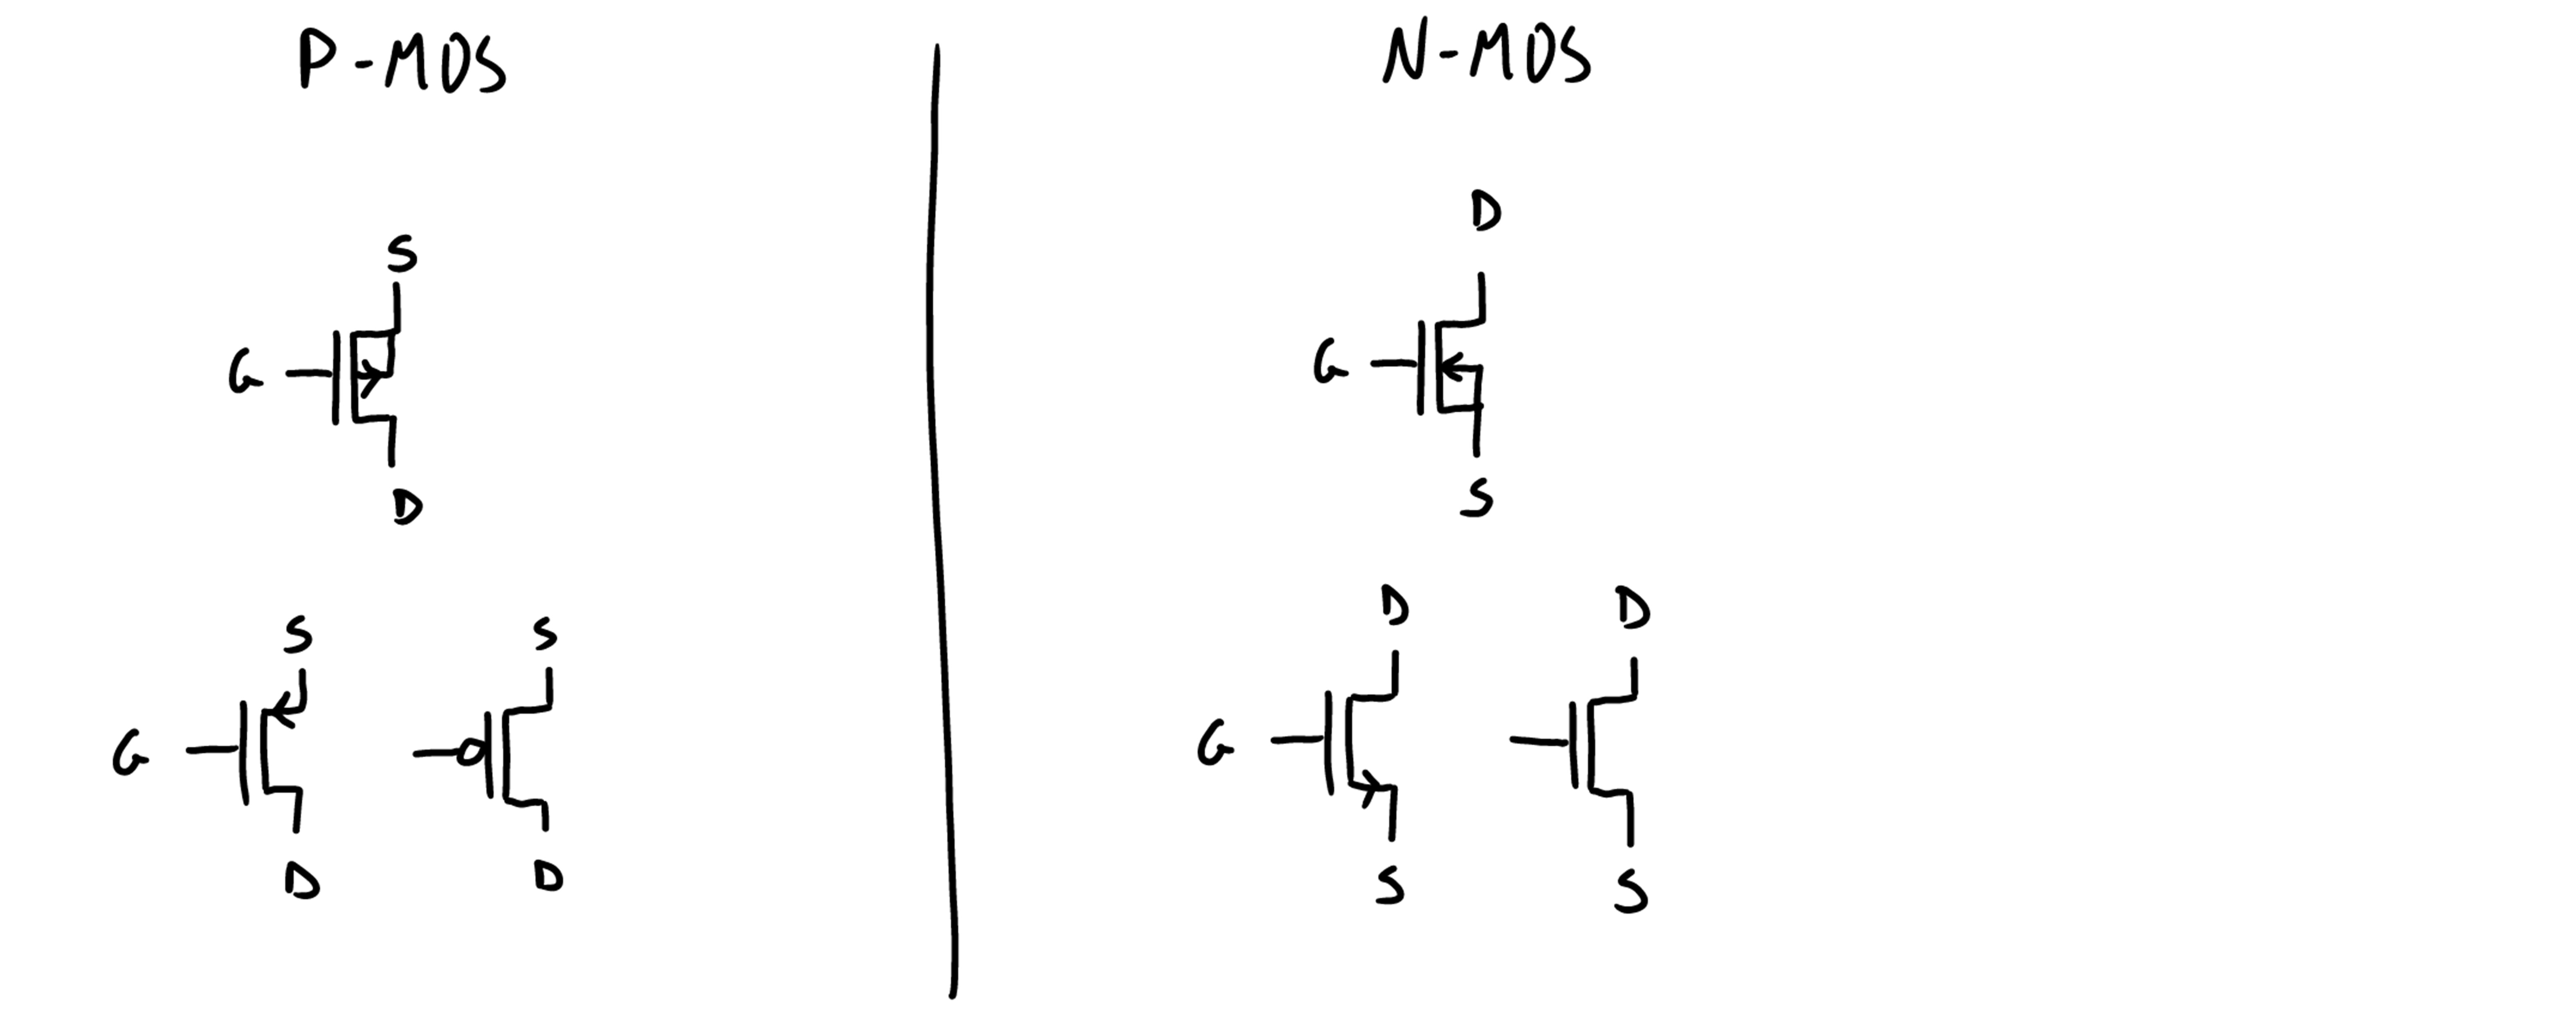 P-MOS
S
G
D
S
S
G
D
D
N-MOS
D
G
S
D
D
G
S
S